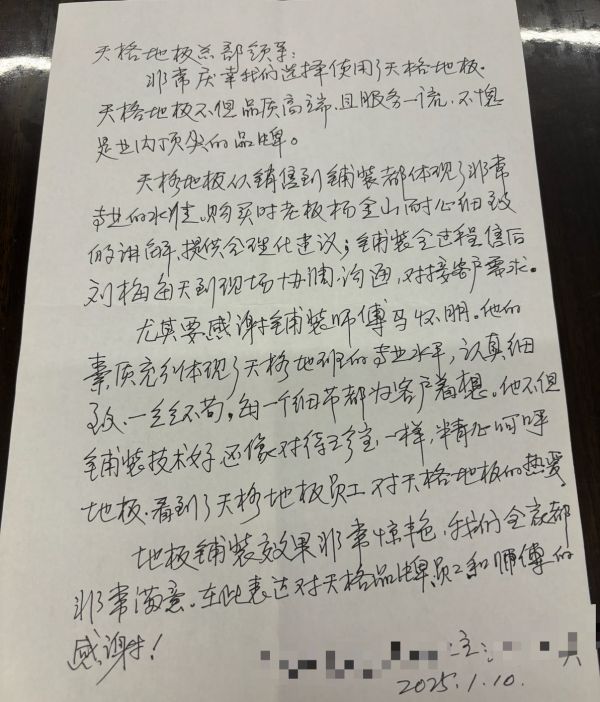 天格地板总部领导:
非常庆幸我的选择使用了天格地板.
天格地板不但品质高端,且服务一流,不愧
是业内顶尖的品牌。
天格地板从销售到铺装都体现了非常
专业的水准.购买时老板杨金山耐心细致
的讲解,提供合理化建议;铺装全过程售后
刘梅每天到现场协调,沟通,对接客户需求。
尤其要感谢铺装师傅马怀朋。他的
素质充分体现了天格地板的专业水平,认真细
致、一丝不苟,每一个细节都为客户着想。他不但
铺装技术好,还像对待珍宝一样,精心呵呼
地板,看到了天格地板员工对天格地板的热爱
地板铺装效果非常惊艳,我们全家都
非常满意.在此表达对天格品牌员工和师傅的
感谢!
2025.1.10.